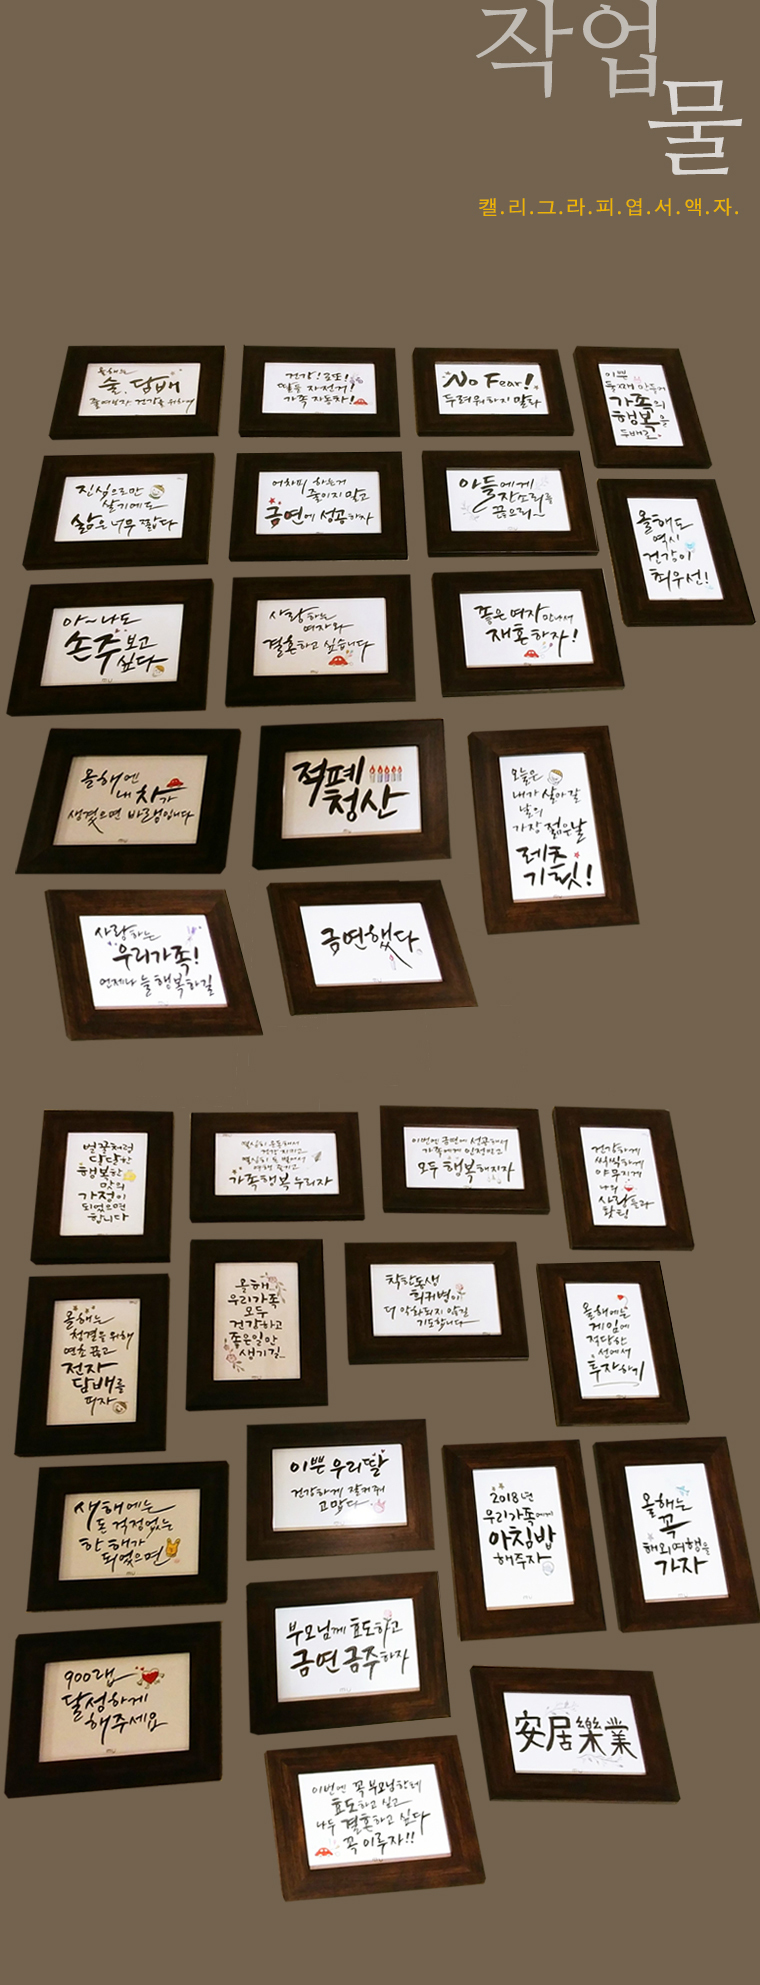 작업
물
캘.리.그.라.피.엽.서.액.자.
올해는
술.담배
줄여보자 건강을 위하여
건강! 로또!
딸들 자전거!
가족 자동차!
No Fear!
두려워하지 말라
이쁜
둘째 만들어
가족의
행복을
두배로.
진심으로만
살기에도
삶은 너무 짧다
어차피 하는거
줄이지 말고
금연에 성공하자
아들에게
잔소리를
끊으리~
올해도
역시
건강이
최우선!
아~나도
손주보고
싶다
사랑하는
여자와
결혼하고 싶습니다
좋은 여자 만나서
재혼하자!
올해엔
내 차가
생겼으면 바래봅니다
적폐
청산
오늘은
내가 살아갈
날의
가장 젊은 날
레츠
기릿!
사랑하는
우리가족!
언제나 늘 행복하길
금연했다
벌꿀처럼
달달한
행복한
맛의
가정이
되었으면
합니다
열심히 운동해서
건강 지키고
열심히 돈 벌어서
여행 즐기고
가족행복 누리자
이번엔 금연에 성공해서
가족에게 인정받고
모두 행복해지자
건강하게
씩씩하게
야무지게
나의
사랑둥이
왕팀
올해는
청결을 위해
연초 끊고
전자
담배를
피자
올해
우리가족
모두
건강하고
좋은일만
생기길
착한동생
희귀병이
더 악화되지 않길
기도합니다
올해에는
게임에
적당한
선에서
투자하기
새해에는
돈 걱정없는
한 해가
되었으면
이쁜 우리딸
건강하게 잘커줘
고맙다
2018년
우리가족에게
아침밥
해주자
올해는
꼭
해외여행을
가자
900랩
달성하게
해주세요
부모님께 효도하고
금연 금주하자
安居樂業
이번엔 꼭 부모님한테
효도하고 싶고
나두 결혼하고 싶다
꼭 이루자!!